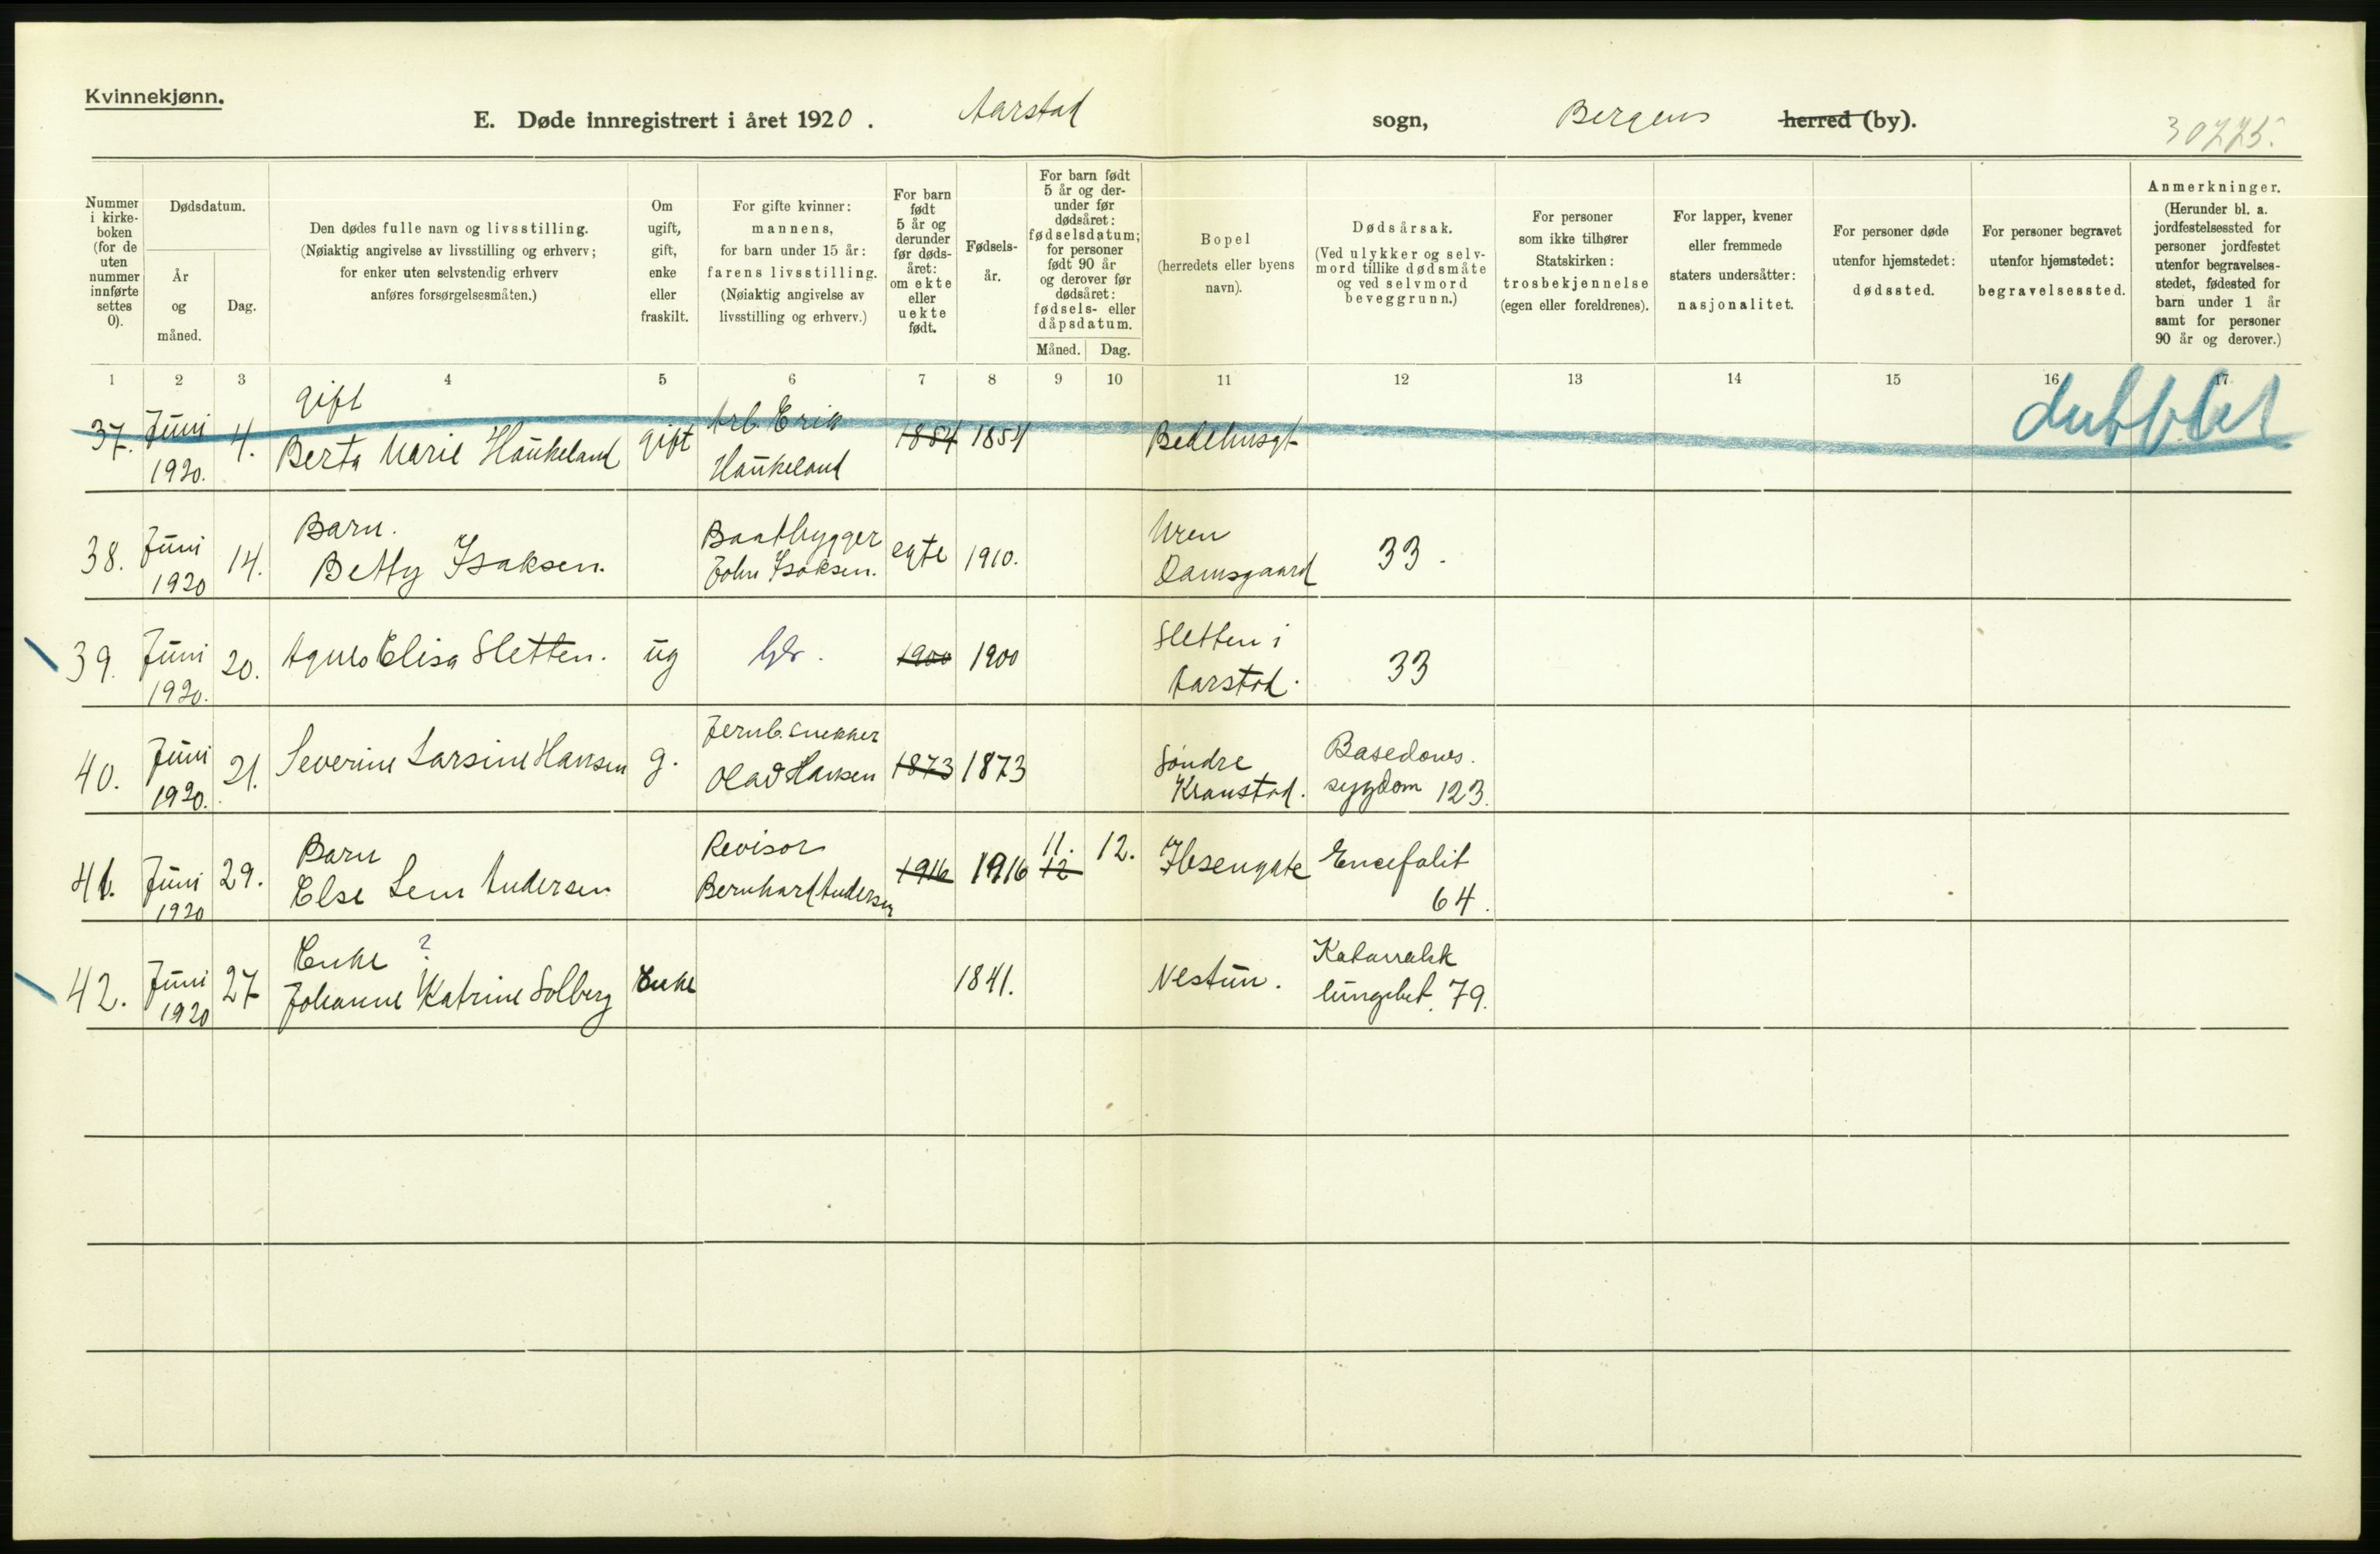 Kvinnekjønn.
E. Døde innregistrert i året 1920. Aarstad sogn, Bergens herred (by).
30775.
Nummer i kirke-boken (for de uten nummer innførte settes 0).
Dødsdatum.
År og måned.
Dag.
Den dødes fulle navn og livsstilling.
(Nøiaktig angivelse av livsstilling og erhverv;
for enker uten selvstendig erhverv
anføres forsørgelsesmåten.)
Om ugift, gift, enke eller fraskilt.
For gifte kvinner:
mannens,
for barn under 15 år:
farens livsstilling.
(Nøiaktig angivelse av
livsstilling og erhverv.)
For barn født 5 år og derunder før døds-året: om ekte eller uekte født.
Fødsels-år.
For barn født 5 år og der-under før dødsåret: fødselsdatum; for personer født 90 år og derover før dødsåret: fødsels- eller dåpsdatum.
Måned. Dag.
Bopel
(herredets eller byens
navn).
Dødsårsak.
(Ved ulykker og selv-
mord tillike dødsmåte
og ved selvmord
beveggrunn.)
For personer
som ikke tilhører
Statskirken:
trosbekjennelse
(egen eller foreldrenes).
For lapper, kvener
eller fremmede
staters undersåtter:
nasjonalitet.
For personer døde
utenfor hjemstedet:
dødssted.
For personer begravet
utenfor hjemstedet:
begravelsessted.
Anmerkninger.
(Herunder bl. a.
jordfestelsessted for
personer jordfestet
utenfor begravelses-
stedet, fødested for
barn under 1 år
samt for personer
90 år og derover.)
1 2 3 4 5 6 7 8 9 10 11 12 13 14 15 16 17
37. Juni 1920. 4. gift Berta Marie Haukeland gift Arb. Erik Haukeland 1854 1854 Bedehusgt dubblet
38. Juni 1920 14. Barn. Betty Isaksen. Baatbygger John Isaksen. egte 1910. Uren Damsgaard 33.
39. Juni 1920. 20. Agnes Elisa Sletten. ug 1900 1900 Sletten i Aarstad. 33
40. Juni 1920. 21. Severine Larsine Hansen g. Jernb. snekker Olav Hansen 1873 1873 Søndre Kronstad. Basedows. sygdom 123.
41. Juni 1920 29. Barn Else Lem Andersen Revisor Bernhard Andersen 1916 1916 11. 12 12. Ibsengate Encefalit 64.
42. Juni 1920 27 Enke ? Johanne Katrine Solberg Enke 1841. Nestun. Katarralsk lungebet. 79.